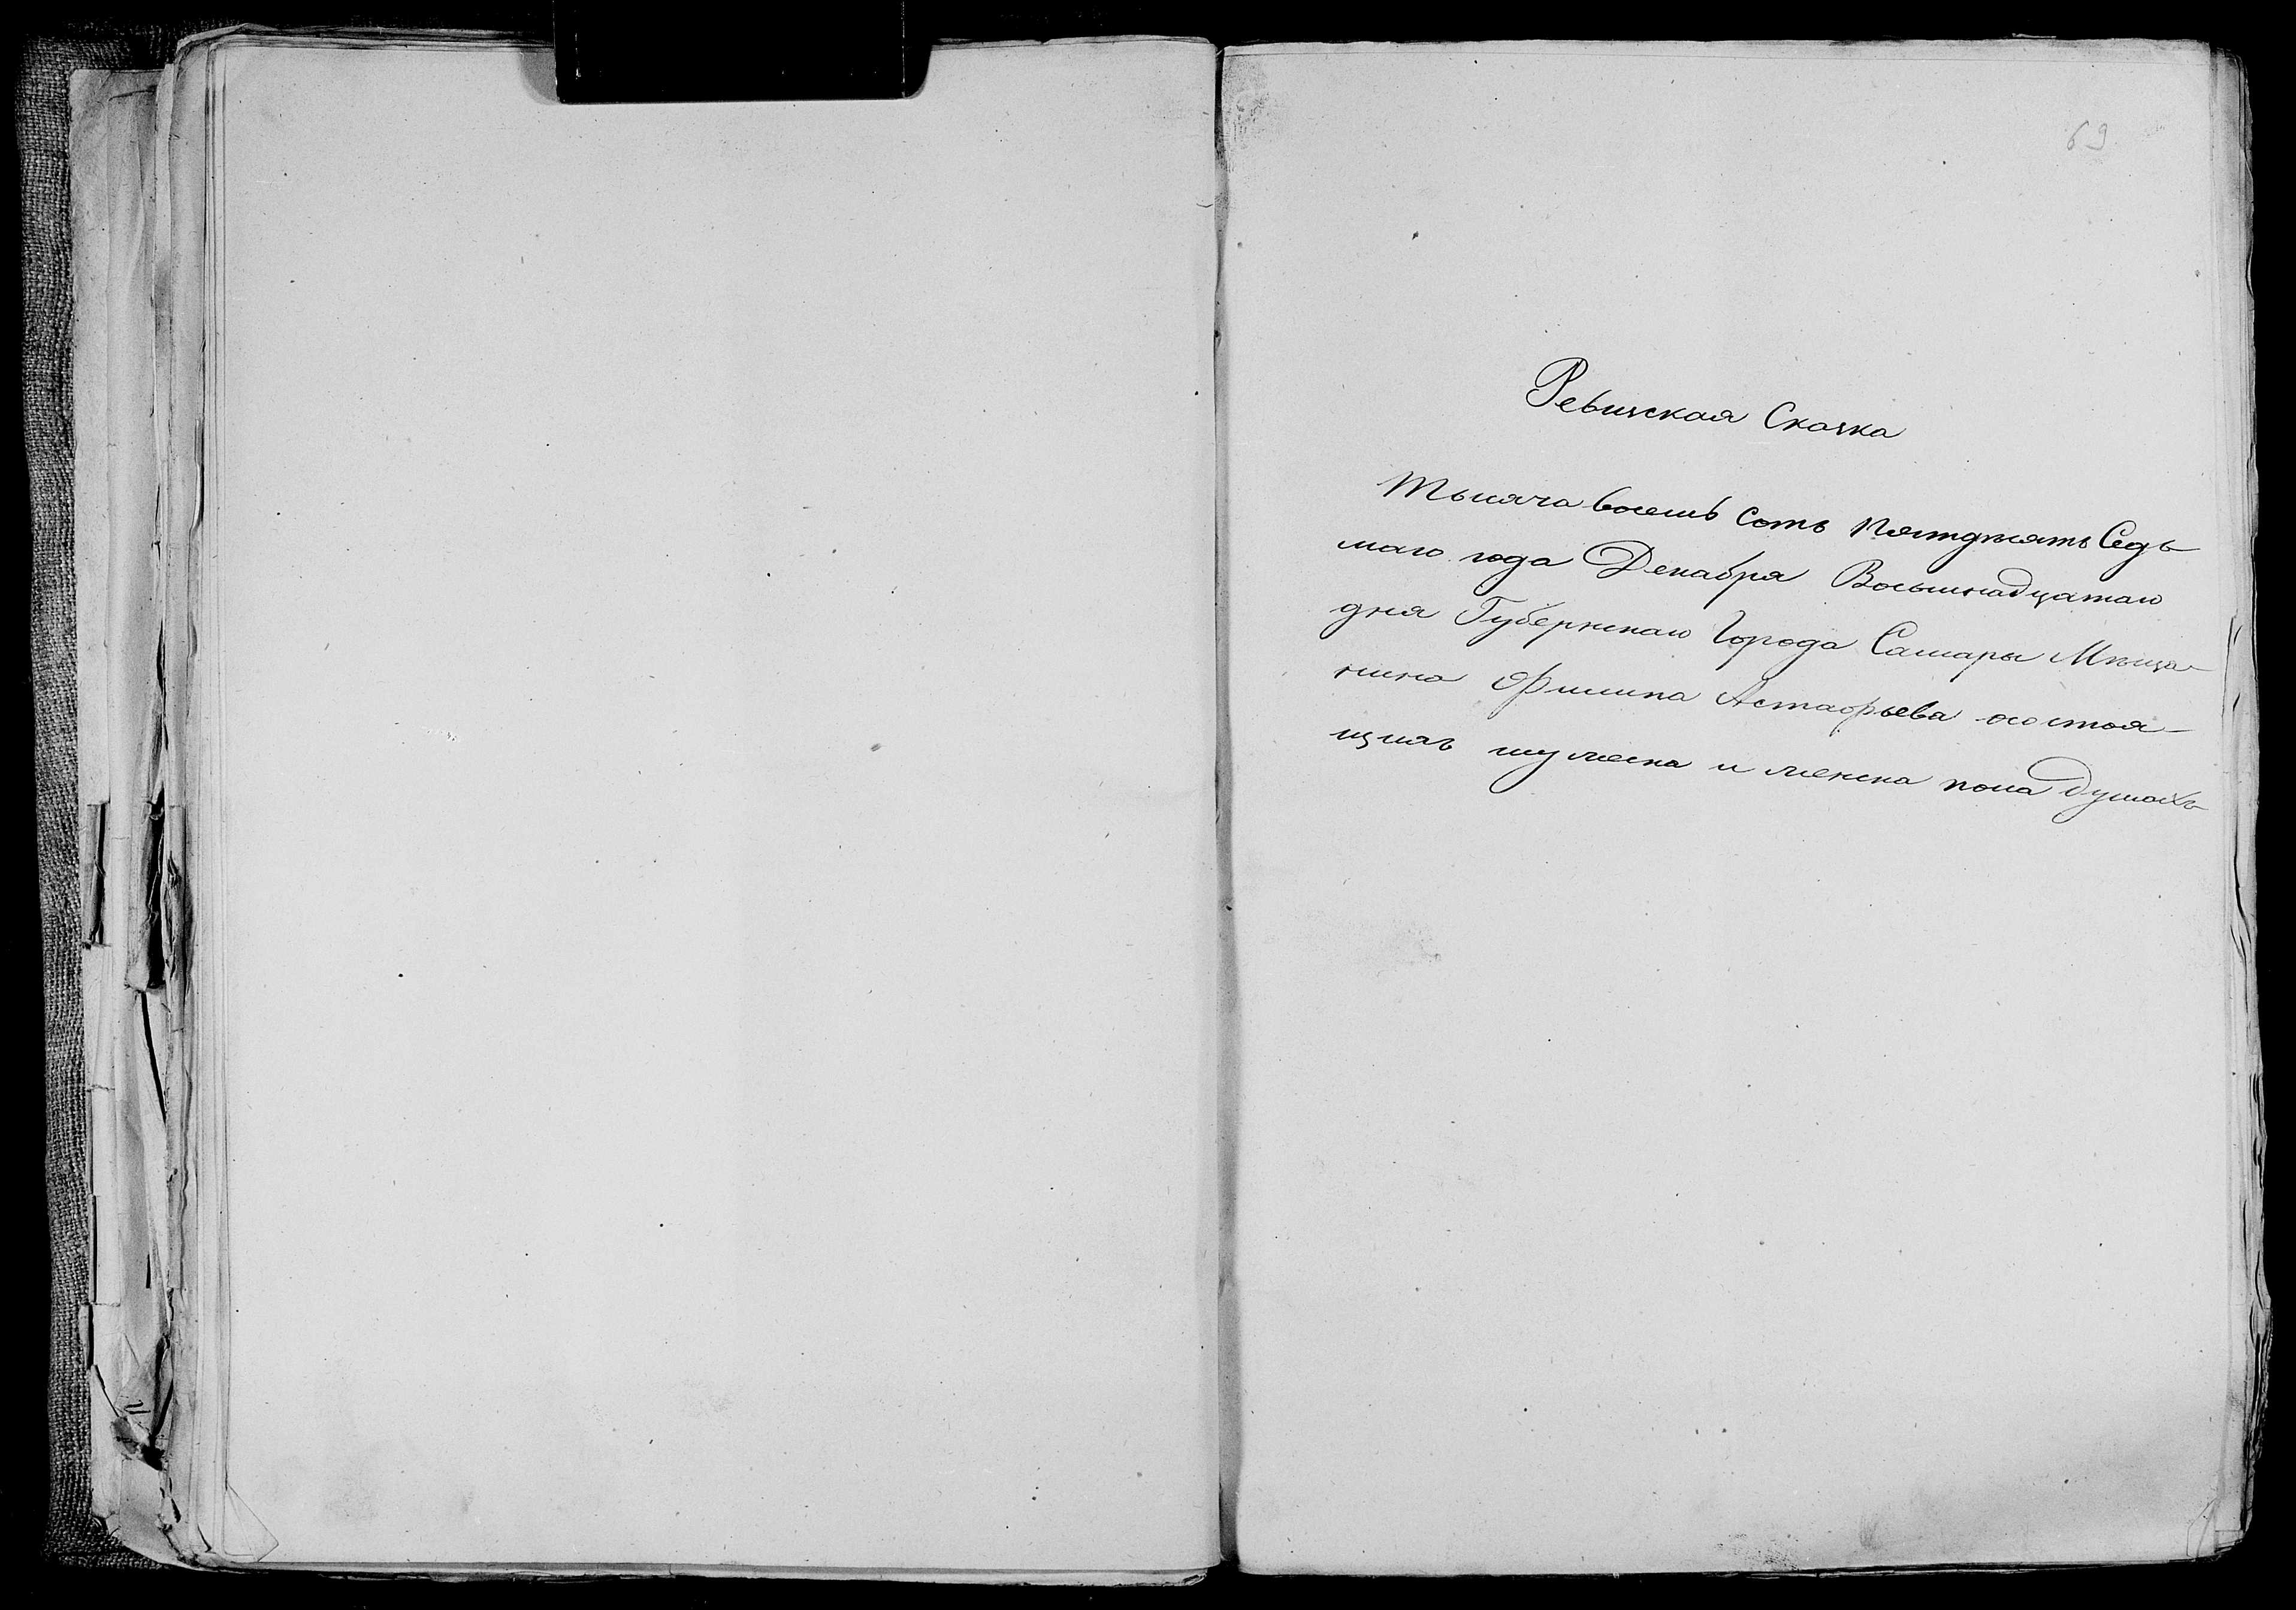 69
Ревиская Скаска
Тысяча восемь сотъ Пятдѣсятъ Седь
маго года Декабря Восьмнадцатаго
дня Губернскаго Города Самары Мѣща-
нина Филипа Астафьева о состоя-
щихъ мужеска и женска пола душахъ